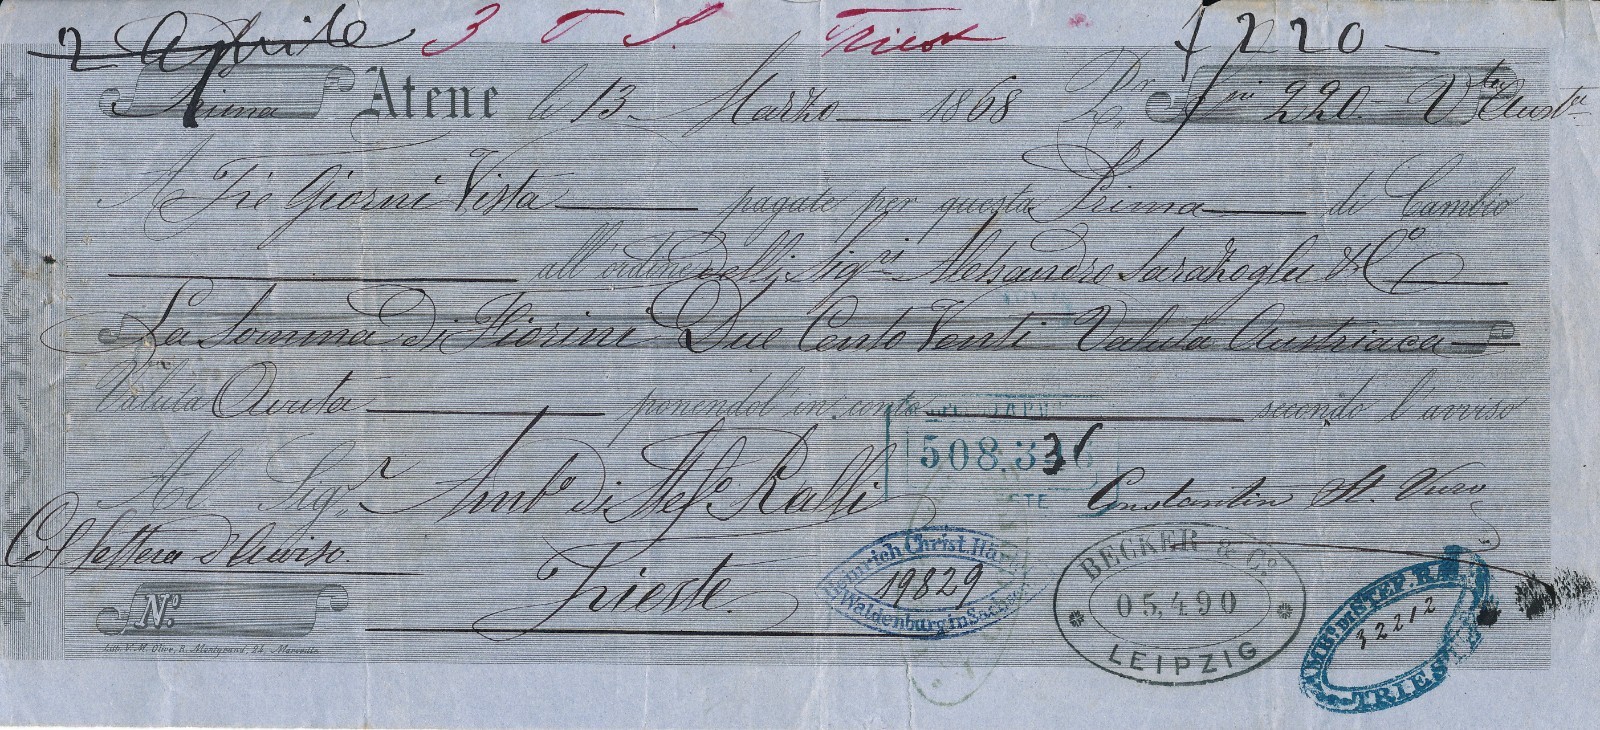 2 Aprile 3 T S. Triest f 220 —
Prima Atene li 13 Marzo 1868 Pr. fni 220 - Vta Austa
A Tre Giorni Vista pagate per questa Prima di Cambio
all'ordine delli Sigri Alessandro Sarazoglu & Co
La Somma di Fiorini Due Cento Venti Valuta Austriaca
Valuta Avuta ponendol'in conto secondo l'avviso
508.336
Al Sigr. Ambo di Stefo Ralli Constantin St.
Col lettera d'Avviso.
Trieste.
Heinrich Christ. Härtel
19829
Waldenburg in Sachsen
BECKER & Co.
05,490
LEIPZIG
AMBr. DI STEF. RALLI
32212
TRIESTE
No.
Lith. V. M. Olive, R. Montgrand, 24, Marseille